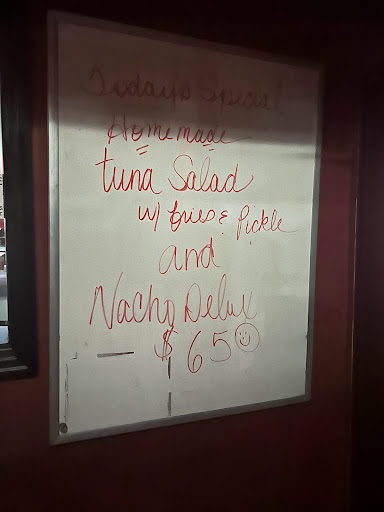 Today's Special
Homemade
tuna Salad
w/ fries & Pickle
and
Nacho Delux
$ 65